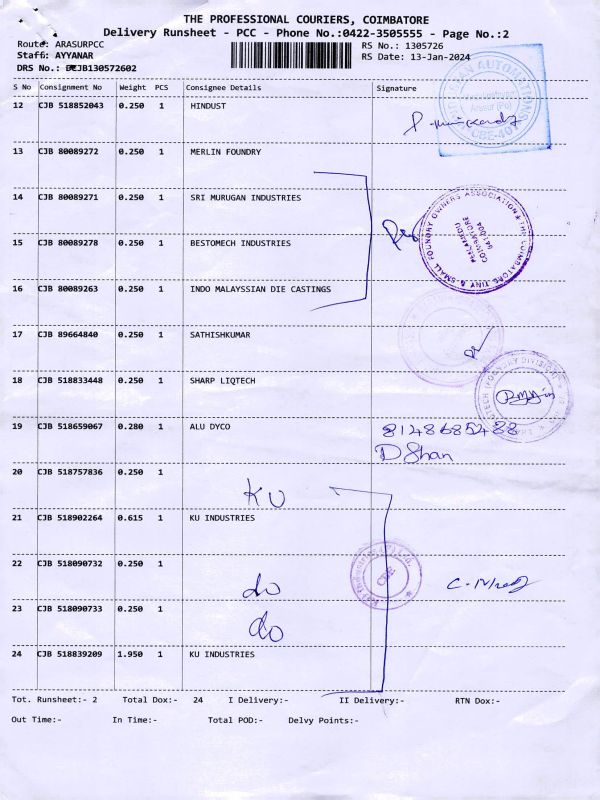 THE PROFESSIONAL COURIERS, COIMBATORE
Delivery Runsheet - PCC - Phone No.:0422-3505555 - Page No.:2
Route: ARASURPCC RS No.: 1305726
Staff: AYYANAR RS Date: 13-Jan-2024
DRS No.: CJB130572602
S No Consignment No Weight PCS Consignee Details Signature
12 CJB 518852043 0.250 1 HINDUST
13 CJB 80089272 0.250 1 MERLIN FOUNDRY
14 CJB 80089271 0.250 1 SRI MURUGAN INDUSTRIES
15 CJB 80089278 0.250 1 BESTOMECH INDUSTRIES
THE COIMBATORE TINY & SMALL FOUNDRY OWNERS ASSOCIATION
COIMBATORE
641 004
16 CJB 80089263 0.250 1 INDO MALAYSSIAN DIE CASTINGS
17 CJB 89664840 0.250 1 SATHISHKUMAR
18 CJB 518833448 0.250 1 SHARP LIQTECH
19 CJB 518659067 0.280 1 ALU DYCO 8148685488
D Shan
20 CJB 518757836 0.250 1 KU
21 CJB 518902264 0.615 1 KU INDUSTRIES
22 CJB 518090732 0.250 1 do
CBE
23 CJB 518090733 0.250 1 do
24 CJB 518839209 1.950 1 KU INDUSTRIES
Tot. Runsheet:- 2 Total Dox:- 24 I Delivery:- II Delivery:- RTN Dox:-
Out Time:- In Time:- Total POD:- Delvy Points:-